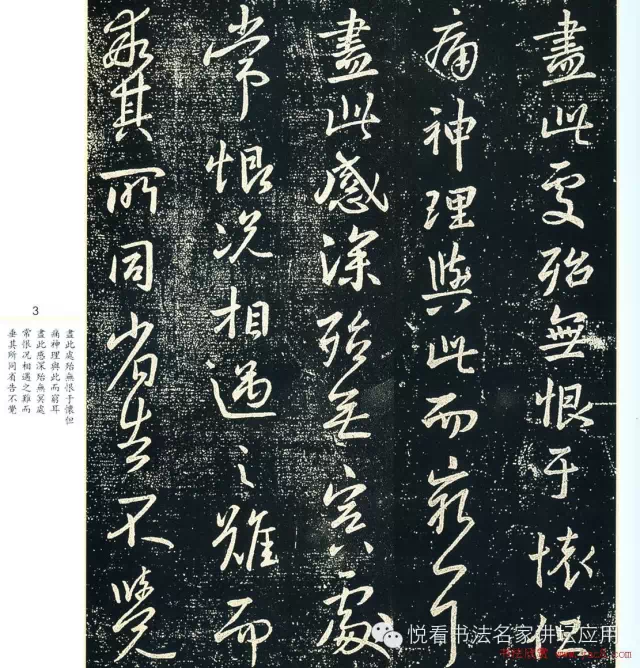 盡此處殆無恨于懷但
痛神理與此而窮耳
盡此感深殆無冥處
常恨况相遇之難而
乖其所同省告不覺
3
盡此處殆無恨于懷但
痛神理與此而窮耳
盡此感深殆無冥處
常恨况相遇之難而
垂其所同省告不覺
悦看书法名家讲坛应用
书法欣赏